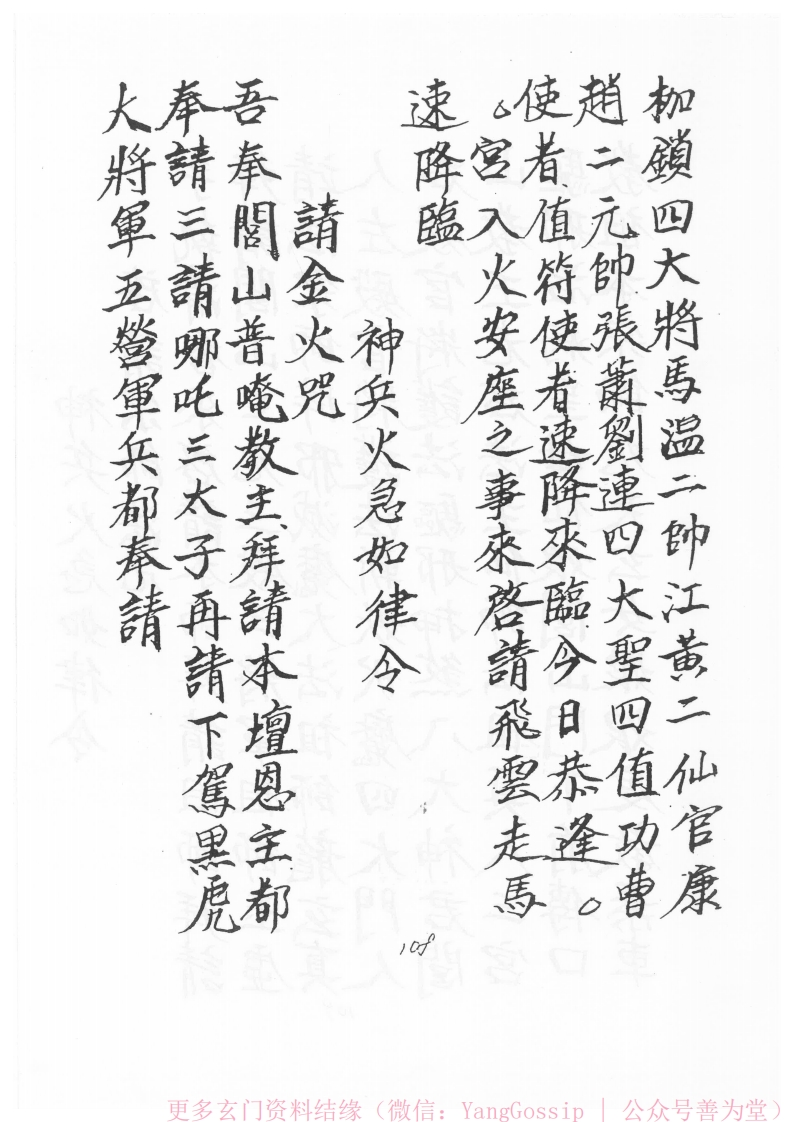 枷鎖四大將馬溫二帥江黃二仙官康
趙二元帥張蕭劉連四大聖四值功曹
使者值符使者速降來臨今日恭逢。
。宮入火安座之事來啓請飛雲走馬
速降臨
神兵火急如律令
請金火咒
吾奉閭山普唵教主拜請本壇恩主都
奉請三請哪吒三太子再請下駕黑虎
大將軍五營軍兵都奉請
108
更多玄门资料结缘（微信：YangGossip | 公众号善为堂）